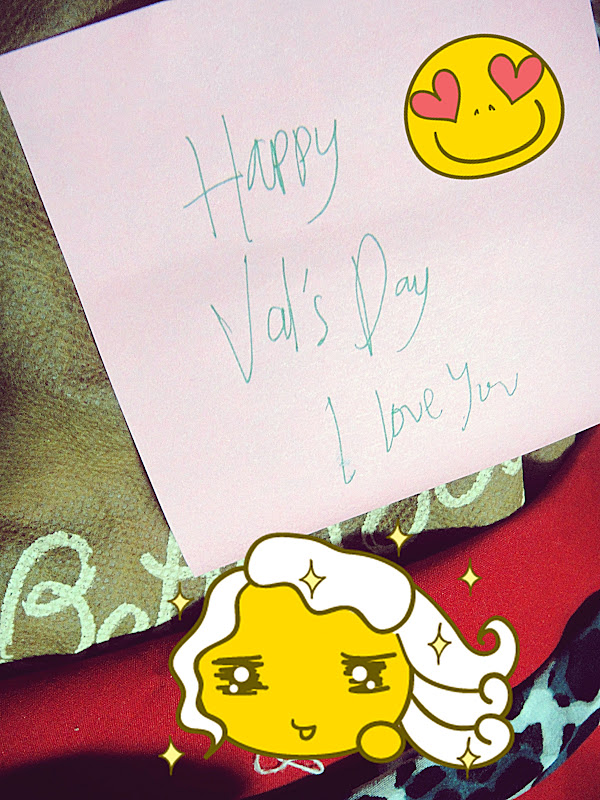 Happy
Val's Day
I love You